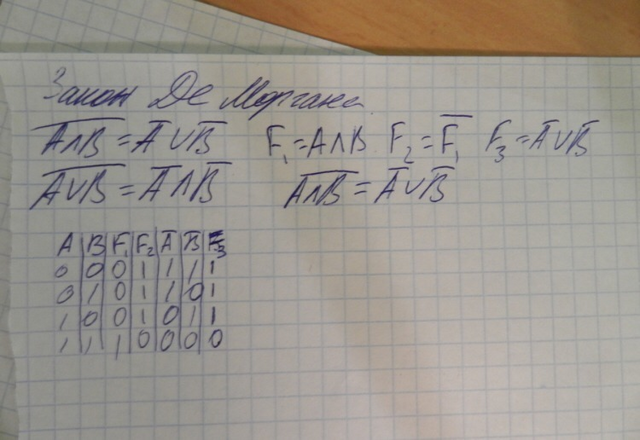 Закон Де Моргана
A̅∧̅B̅ = A̅ ∪ B̅ F₁ = A∧B F₂ = F̅₁ F₃ = A̅ ∪ B̅
A̅∪̅B̅ = A̅ ∧ B̅ A̅∧̅B̅ = A̅ ∪ B̅
A | B | F₁ | F₂ | A̅ | B̅ | F₃
0 | 0 | 0 | 1 | 1 | 1 | 1
0 | 1 | 0 | 1 | 1 | 0 | 1
1 | 0 | 0 | 1 | 0 | 1 | 1
1 | 1 | 1 | 0 | 0 | 0 | 0